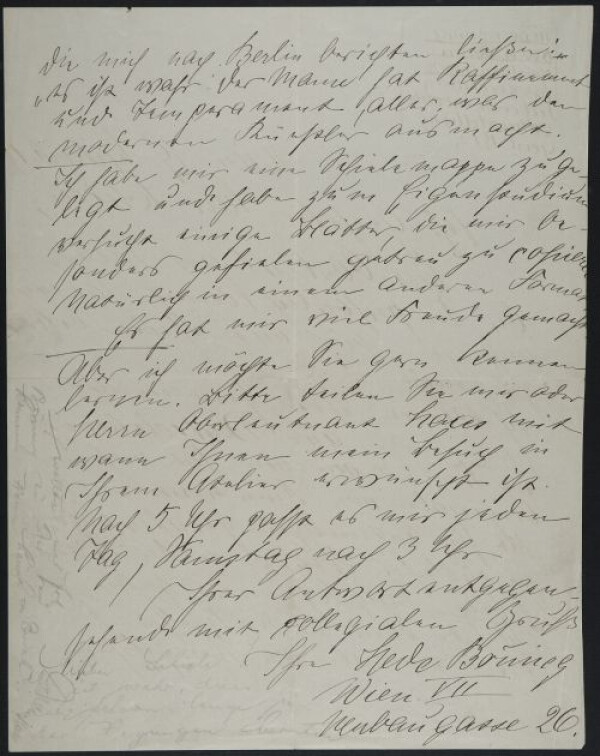 die mich nach Berlin berichten ließen:
„es ist wahr der Mann hat Raffinement
und Temperament, alles, was den
modernen Künstler ausmacht.
Ich habe mir eine Schielemappe zuge-
legt und habe zum Eigenstudium
versucht einige Blätter, die mir be-
sonders gefielen getreu zu copieren
natürlich in einem anderen Format
Es hat mir viel Freude gemacht
Aber ich möchte Sie gern kennen
lernen. Bitte teilen Sie mir oder
Herrn Oberleutnant mit
wann Ihnen mein Besuch in
Ihrem Atelier erwünscht ist.
Nach 5 Uhr passt es mir jeden
Tag, Samstag nach 3 Uhr
Ihrer Antwort entgegen-
sehend mit collegialen Gruß
Ihre Hede
Wien VII
Neubaugasse 26.